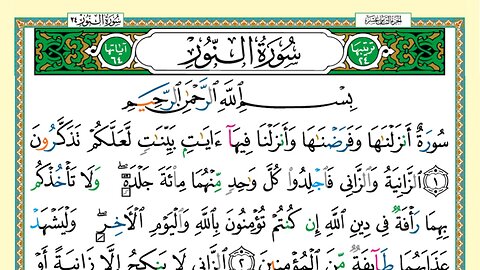 سُورَةُ النُّورِ ٢٤
ترتيبها ٢٤ سُورَةُ النُّورِ آياتها ٦٤
بِسْمِ اللَّهِ الرَّحْمَٰنِ الرَّحِيمِ
سُورَةٌ أَنزَلْنَـٰهَا وَفَرَضْنَـٰهَا وَأَنزَلْنَا فِيهَآ ءَايَـٰتٍۭ بَيِّنَـٰتٍ لَّعَلَّكُمْ تَذَكَّرُونَ
﴿١﴾ ٱلزَّانِيَةُ وَٱلزَّانِى فَٱجْلِدُوا۟ كُلَّ وَٰحِدٍ مِّنْهُمَا مِا۟ئَةَ جَلْدَةٍ ۖ وَلَا تَأْخُذْكُم
بِهِمَا رَأْفَةٌ فِى دِينِ ٱللَّهِ إِن كُنتُمْ تُؤْمِنُونَ بِٱللَّهِ وَٱلْيَوْمِ ٱلْـَٔاخِرِ ۖ وَلْيَشْهَدْ
عَذَابَهُمَا طَآئِفَةٌ مِّنَ ٱلْمُؤْمِنِينَ ﴿٢﴾ ٱلزَّانِى لَا يَنكِحُ إِلَّا زَانِيَةً أَوْ